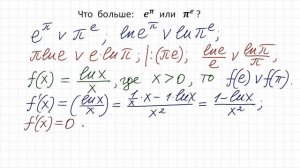 Что больше: e^π или π^e ?
e^π ∨ π^e, ln e^π ∨ ln π^e,
π ln e ∨ e ln π, |:(πe); ln e/e ∨ ln π/π,
f(x) = ln x/x, где x>0, то f(e) ∨ f(π).
f'(x) = (ln x/x)' = (1/x · x − 1 · ln x)/x² = (1−ln x)/x²;
f'(x)=0.